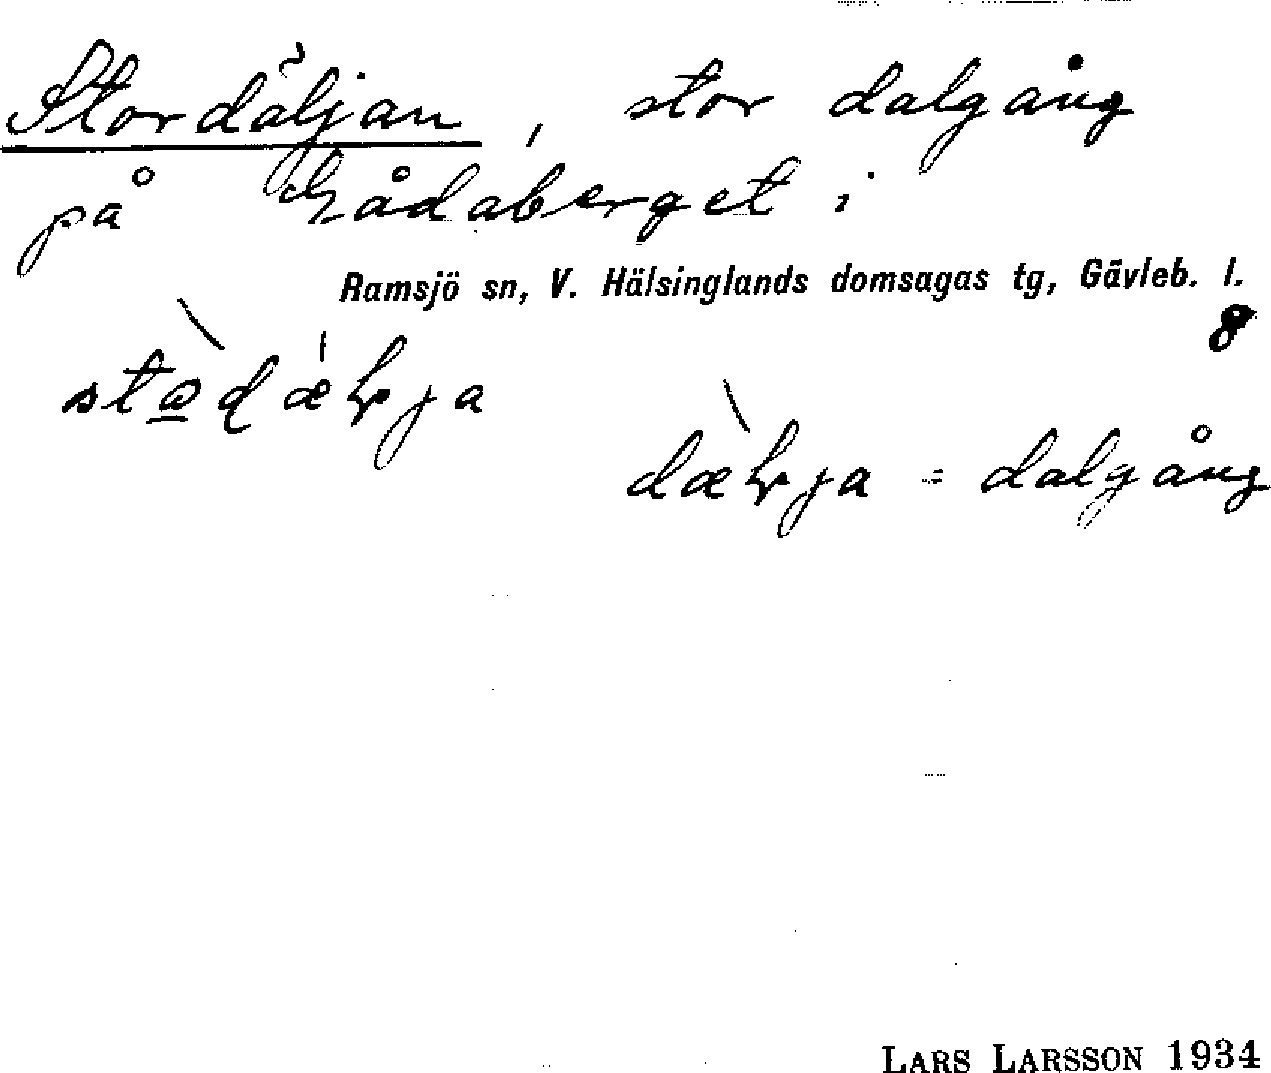 Stordäljan, stor dalgång
på Lådaberget i
Ramsjö sn, V. Hälsinglands domsagas tg, Gävleb. l.
8
dalgång
LARS LARSSON 1934